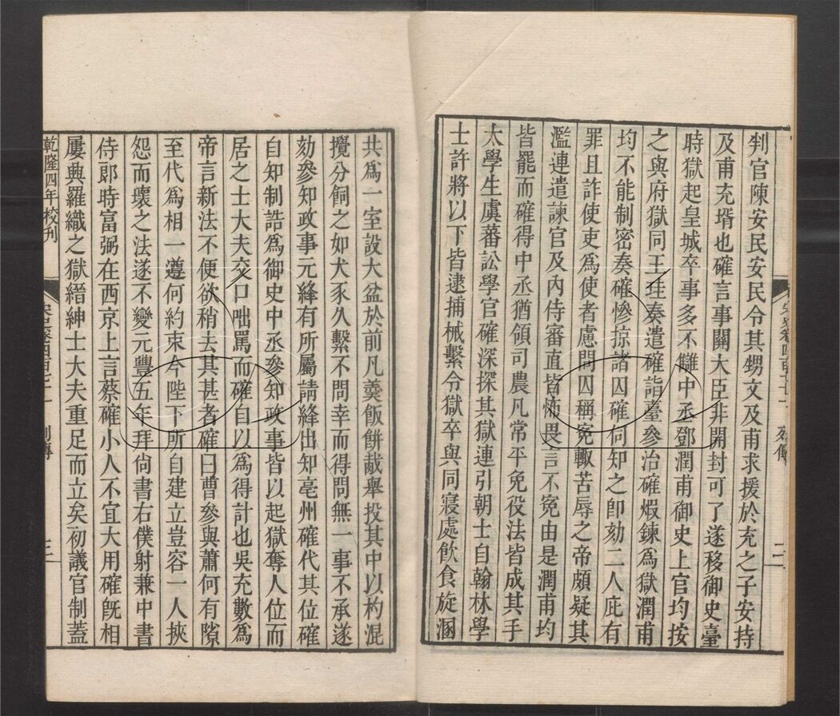 判官陳安民安民令其甥文及甫求援於充之子安持
及甫充壻也確言事關大臣非開封可了遂移御史臺
時獄起皇城卒事多不讎中丞鄧潤甫御史上官均按
之與府獄同王珪奏遣確詣臺參治確煆鍊為獄潤甫
均不能制密奏確慘掠諸囚確伺知之即劾二人庇有
罪且詐使吏為使者慮問囚稱寃輒苦辱之帝頗疑其
濫連遣諫官及內侍審直皆怖畏言不寃由是潤甫均
皆罷而確得中丞猶領司農凡常平免役法皆成其手
太學生虞蕃訟學官確深探其獄連引朝士自翰林學
士許將以下皆逮捕械繫令獄卒與同寢處飲食旋溷
共為一室設大盆於前凡羹飯餅胾舉投其中以杓混
攪分飼之如犬豕久繫不問幸而得問無一事不承遂
劾參知政事元絳有所屬請絳出知亳州確代其位確
自知制誥為御史中丞參知政事皆以起獄奪人位而
居之士大夫交口咄罵而確自以為得計也吳充數為
帝言新法不便欲稍去其甚者確曰曹參與蕭何有隙
至代為相一遵何約束今陛下所自建立豈容一人挾
怨而壞之法遂不變元豐五年拜尚書右僕射兼中書
侍郎時富弼在西京上言蔡確小人不宜大用確既相
屢興羅織之獄縉紳士大夫重足而立矣初議官制蓋
乾隆四年校刊